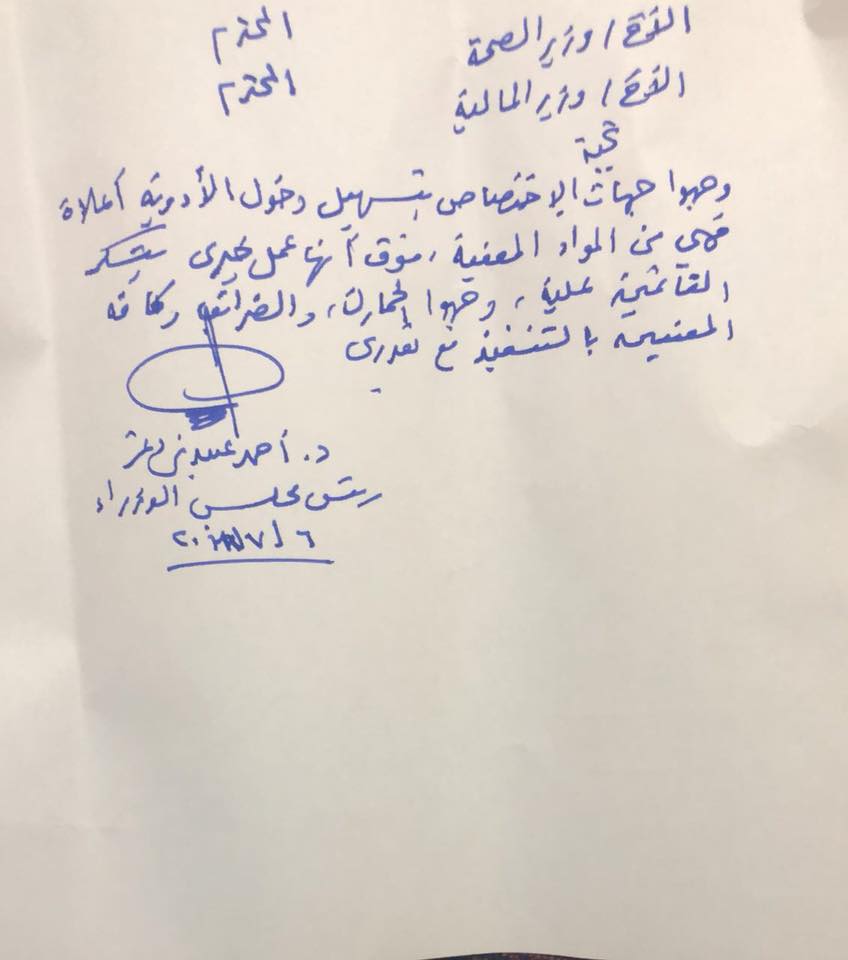 الأخ / وزير الصحة المحترم
الأخ / وزير المالية المحترم
تحية
وجهوا جهات الاختصاص بتسهيل دخول الأدوية أعلاه
فهي من المواد المعفية، فوق أنها عمل خيري يشكر
القائمين عليه، وجهوا الجمارك، والضرائب وكافة
المعنيين بالتنفيذ مع تقديري
د. أحمد عبيد بن دغر
رئيس مجلس الوزراء
٦/٧/